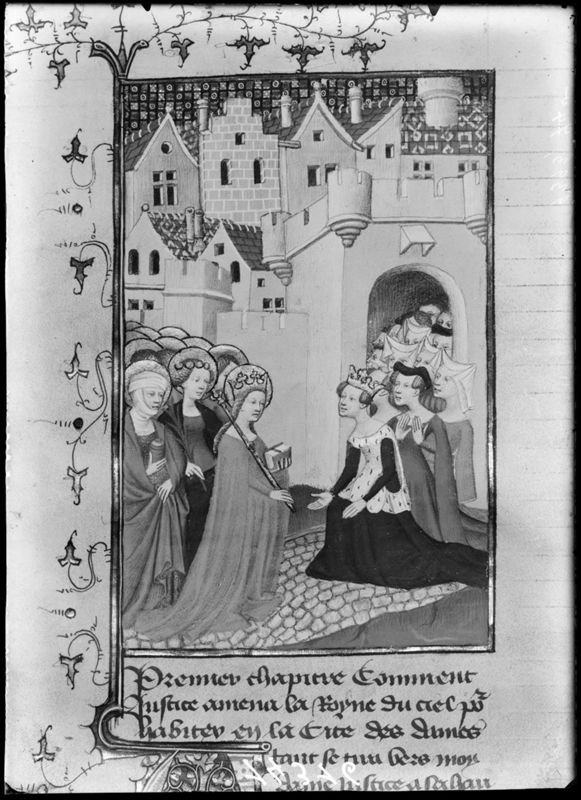 Premier chapitre Comment
Justice amena la Royne du ciel po
habiter en la Cite des dames
tant se tira vers moy
Dame Justice a sa hau